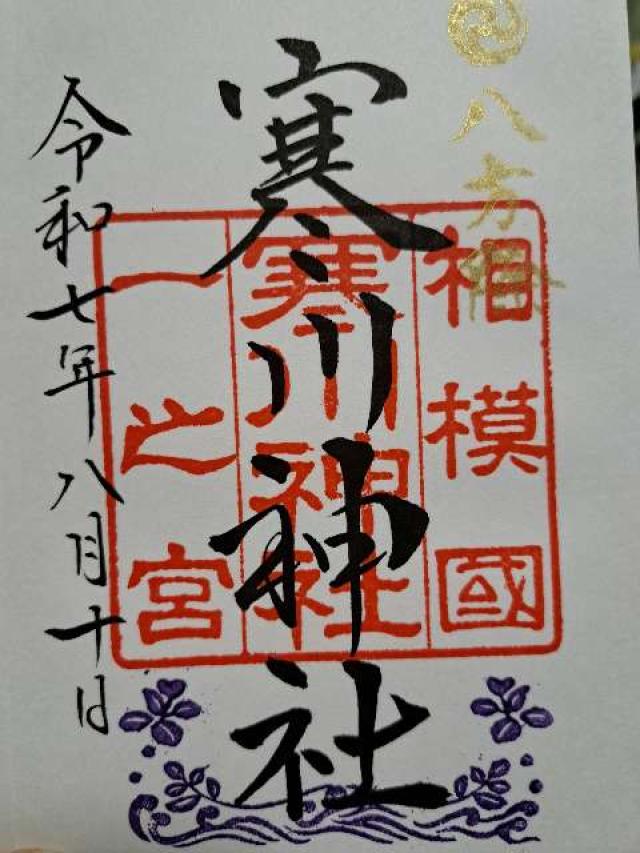 八方除
相模國
寒川神社
一之宮
寒川神社
令和七年八月十日